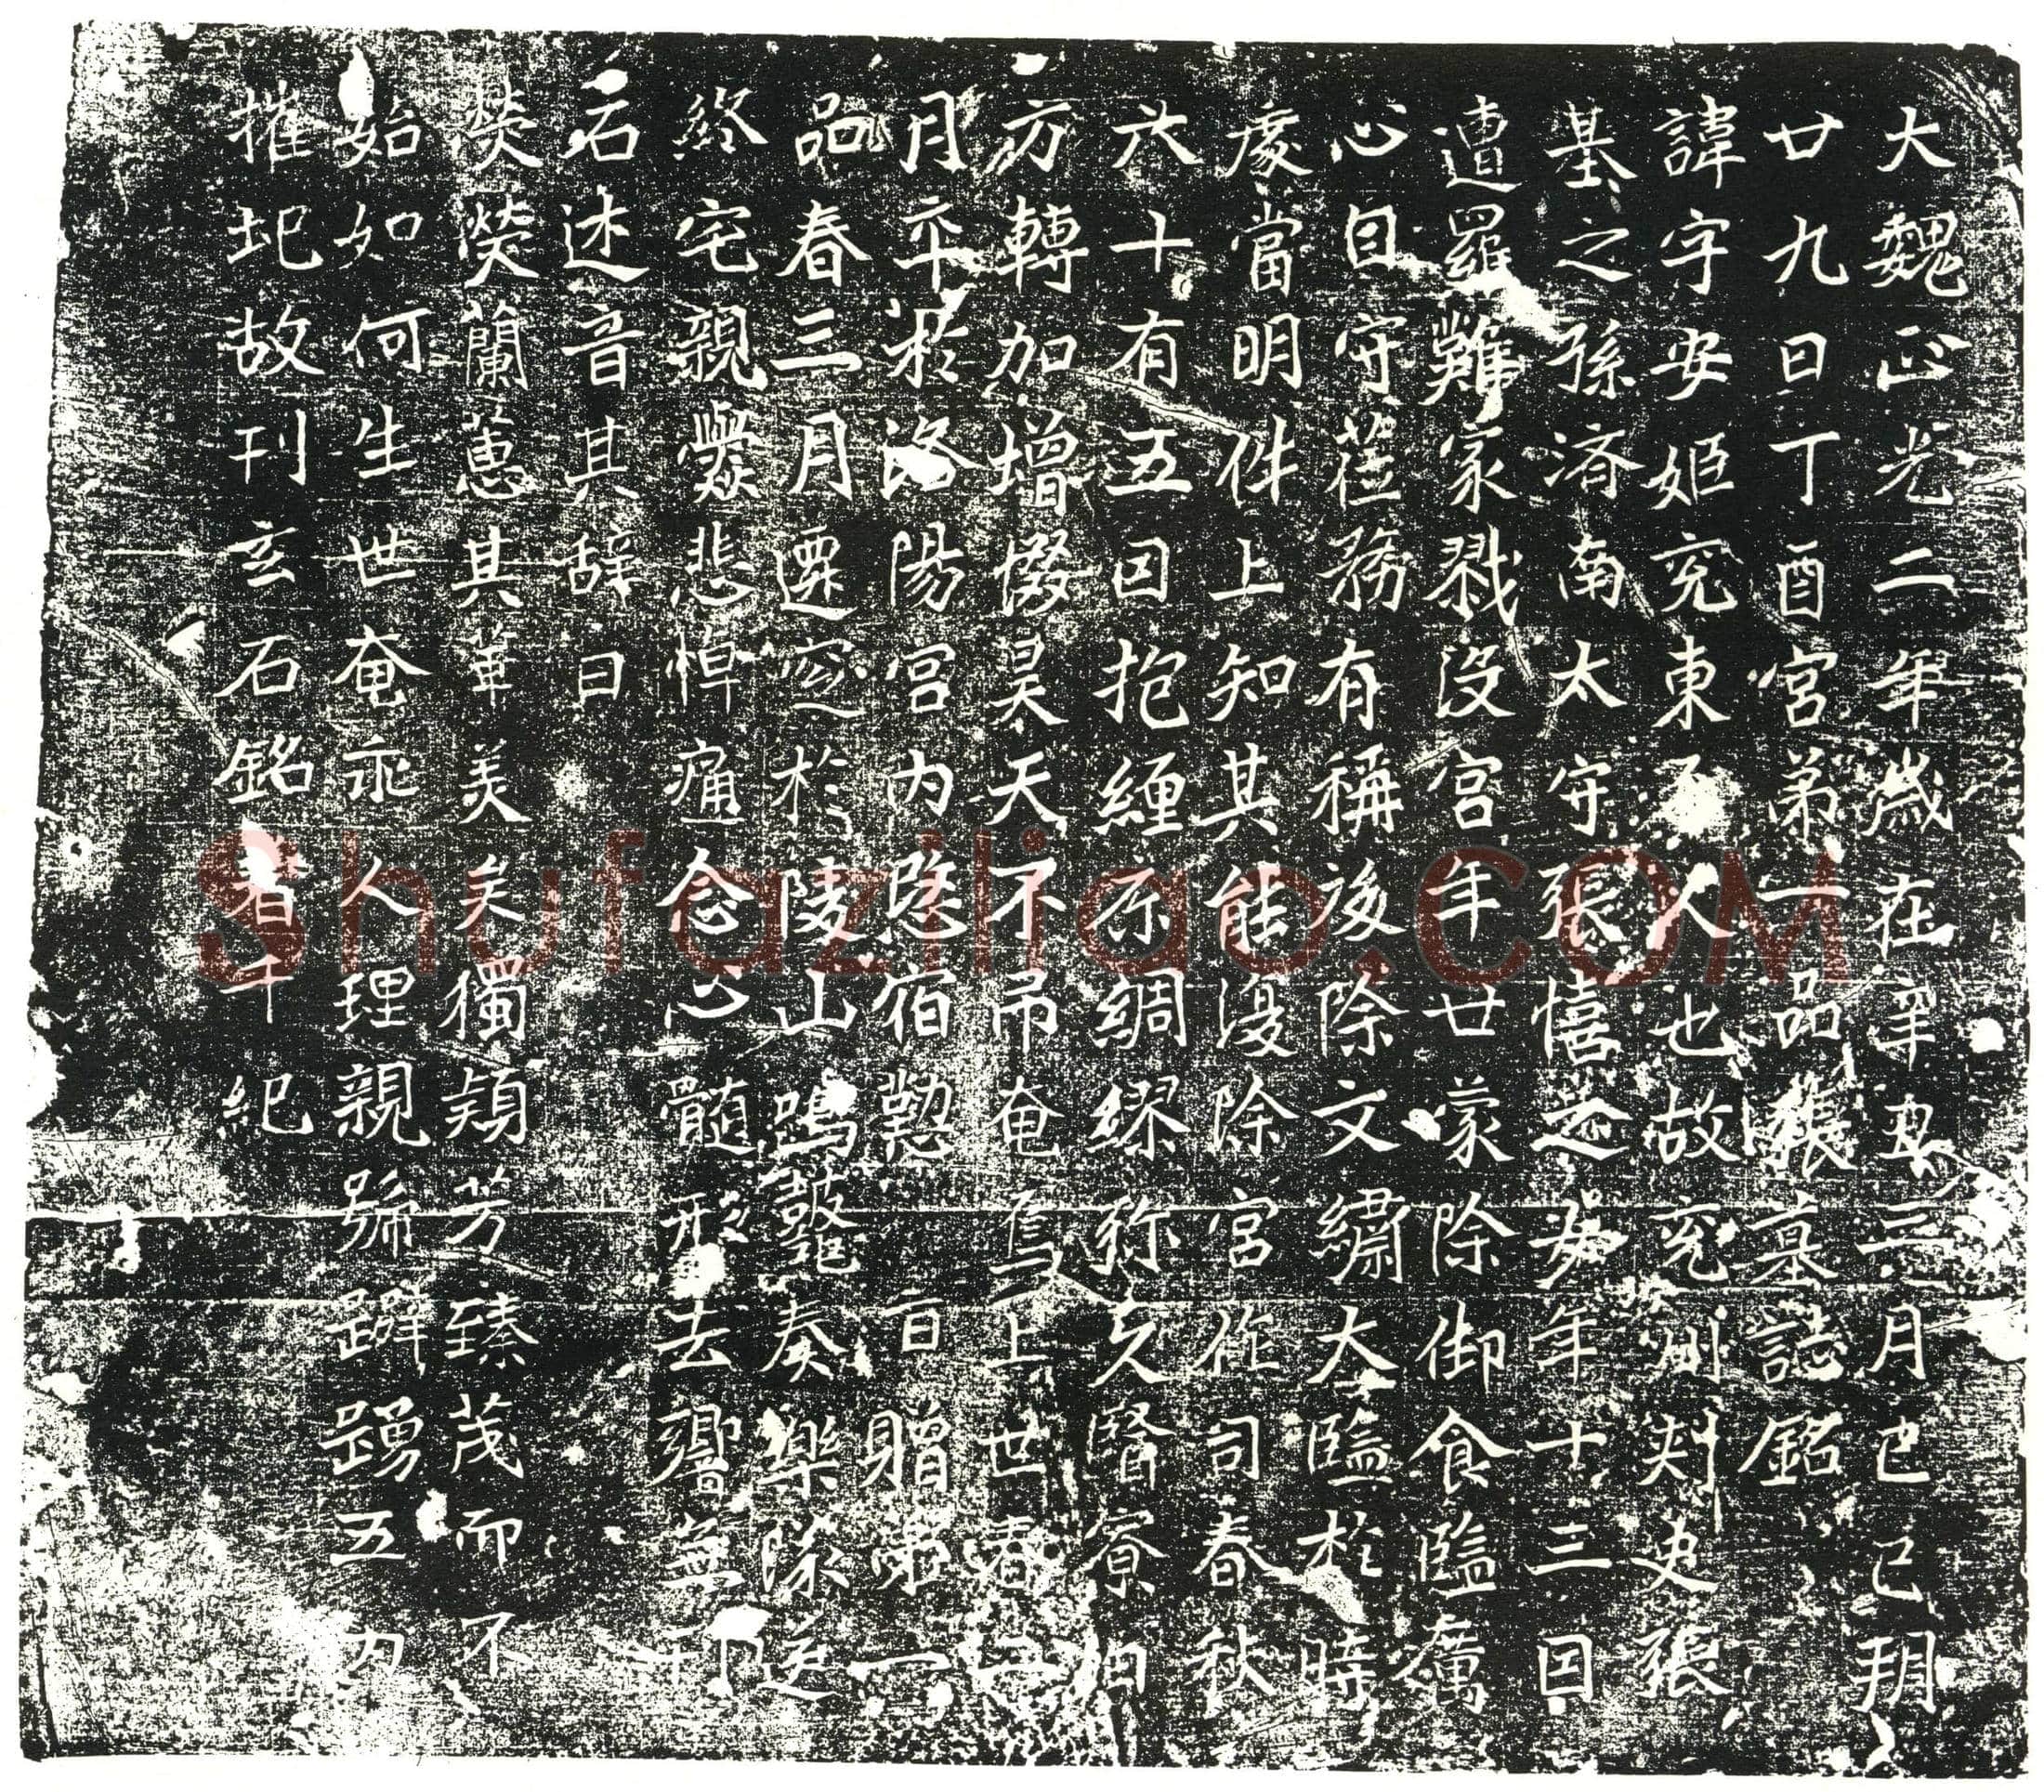 大魏正光二年歲在辛丑三月己巳朔
廿九日丁酉宮第一品張墓誌銘
諱字安姬兗東平人也故兗州刺史張
基之孫濟南太守張憘之女年十三因
遭羅難家戮没宮年廿蒙除御食監厲
心自守莅務有稱後除文繡大監於時
處當明件上知其能復除宮作司春秋
六十有五因抱纏尔綢繆弥久醫寮百
方轉加增惙昊天不弔奄焉上世春二
月卒於洛陽宮内愍宿懃旨贈第一
品春三月遷窆於陵山鳴鼓奏樂隊送
終宅親爨悲悼痛念心髓形去響無刊
石述音其辞曰
熒熒蘭蕙其華美矣獨穎芳臻茂而不
始如何生世奄乖人理親號躃踴五内
摧圮故刊玄石銘著千紀
shufaziliao.com